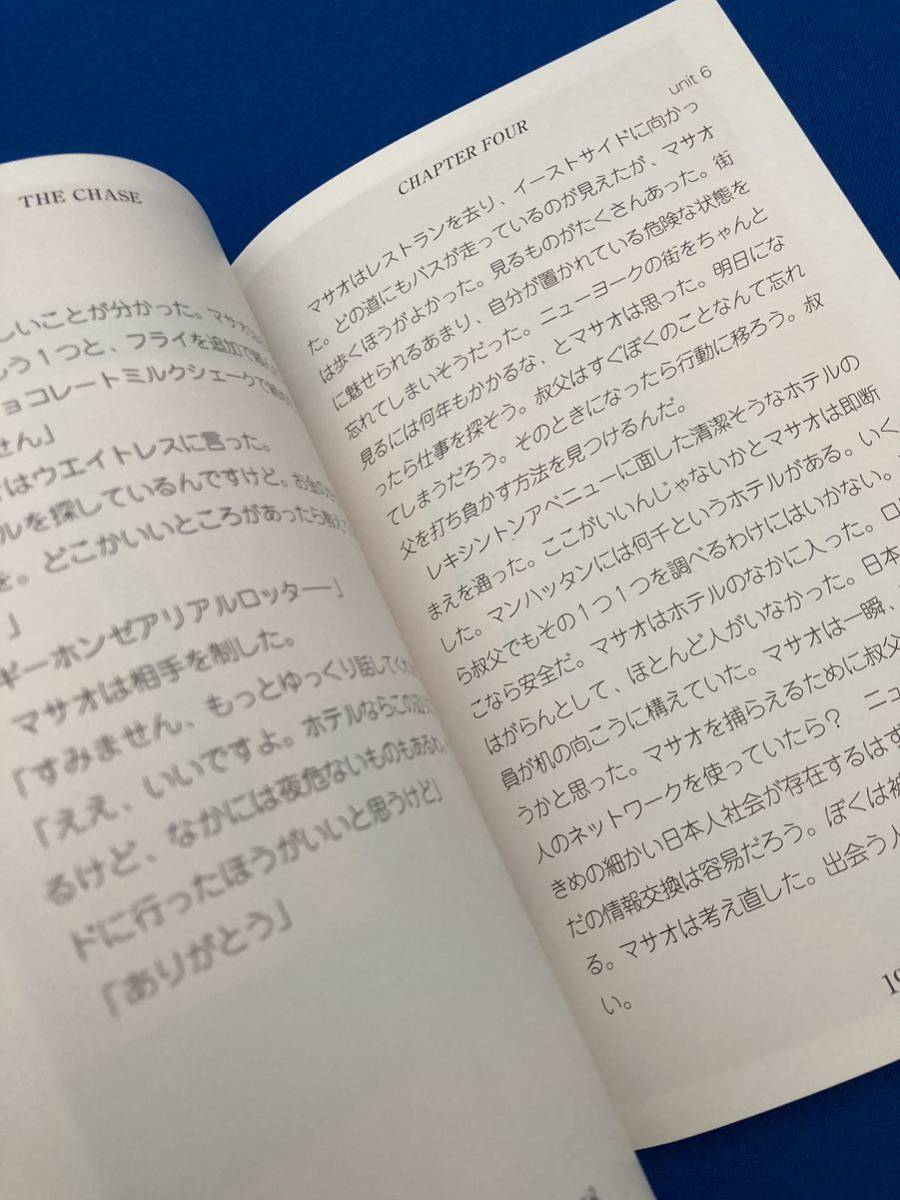 THE CHASE
しいことが分かった。マサオは
う1つと、フライを追加で
ョコレートミルクシェークで
せん」
はウエイトレスに言った。
ルを探しているんですけど。お金
を。どこかいいところがあったら教えて
」
ギーホンゼアリアルロッター」
マサオは相手を制した。
「すみません、もっとゆっくり話してくれ
「ええ、いいですよ。ホテルならこの辺
るけど、なかには夜危ないものもある
ドに行ったほうがいいと思うけど」
「ありがとう」
unit 6
CHAPTER FOUR
マサオはレストランを去り、イーストサイドに向かっ
た。どの道にもバスが走っているのが見えたが、マサオ
は歩くほうがよかった。見るものがたくさんあった。街
に魅せられるあまり、自分が置かれている危険な状態を
忘れてしまいそうだった。ニューヨークの街をちゃんと
見るには何年もかかるな、とマサオは思った。明日にな
ったら仕事を探そう。叔父はすぐぼくのことなんて忘れ
てしまうだろう。そのときになったら行動に移ろう。叔
父を打ち負かす方法を見つけるんだ。
レキシントンアベニューに面した清潔そうなホテルの
まえを通った。ここがいいんじゃないかとマサオは即断
した。マンハッタンには何千というホテルがある。いく
ら叔父でもその1つ1つを調べるわけにはいかない。
こなら安全だ。マサオはホテルのなかに入った。ロ
はがらんとして、ほとんど人がいなかった。日本
員が机の向こうに構えていた。マサオは一瞬、
うかと思った。マサオを捕らえるために叔父
人のネットワークを使っていたら？　ニュ
きめの細かい日本人社会が存在するはず
だの情報交換は容易だろう。ぼくは被
る。マサオは考え直した。出会う人
い。